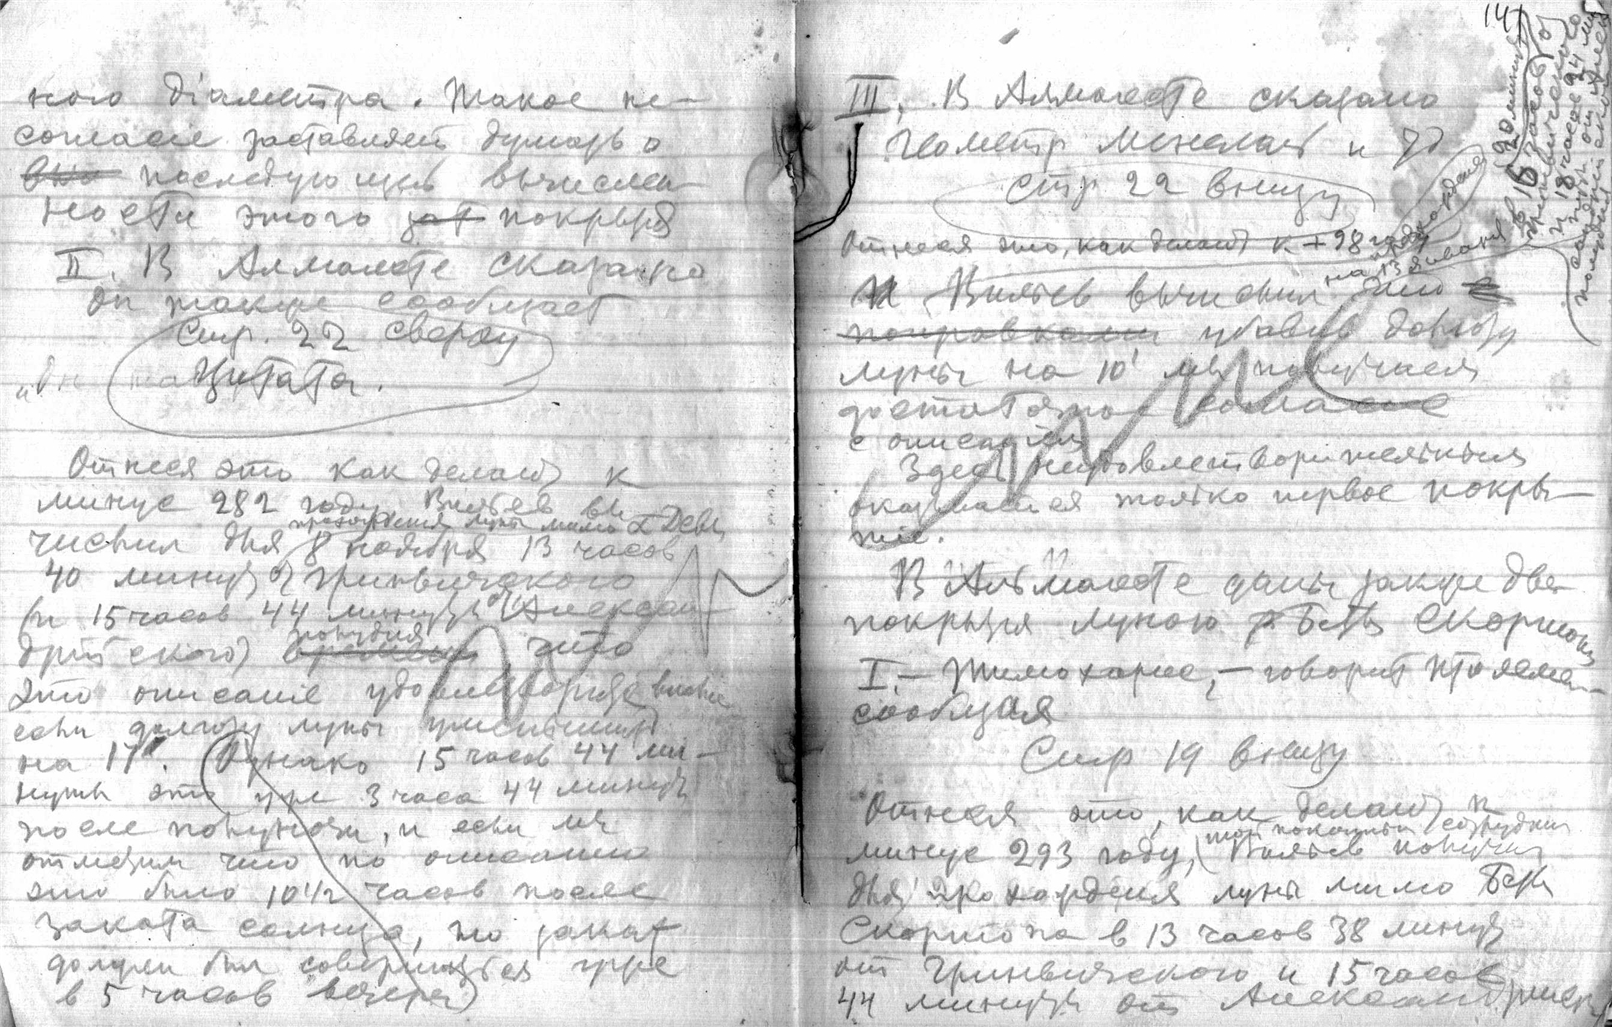 ного діаметра. Такое не-
согласіе заставляет думать о
последующей вычислен
ности этого покрытія
II. В Алмагесте сказано
он также сообщает
Стр. 22 сверху
Цитата.
Отнеся это как делают к
минус 282 году Вильев вы
числил для прохожденія луны мимо α Девы
8 ноября 13 часов
40 минут от Гринвичского
(и 15 часов 44 минуты от Алексан-
дрійского) полудня что
это описаніе удовлетворит
если долготу луны уменьшить
на 17'. Однако 15 часов 44 ми-
нуты это уже 3 часа 44 минуты
после полуночи, и если мы
отметим что по описанию
это было 10 1/2 часов после
заката солнца, то закат
должен был совершиться уже
в 5 часов вечера)
141
III. В Алмагесте сказано
Геометр Менелай и
Стр 22 внизу
Отнеся это, как делают к +98 году
и Вильев вычислил
на 13 января
убавив долготу
луны на 10' мы получаем
достаточное согласие
с описанием
Здесь неудовлетворительным
оказывается только первое покры-
тие.
В "Альмагесте" даны также две
покрытія луною β Беты Скорпіона
I. – Тимохарис, – говорит Птолемей
сообщая
Стр 19 внизу
Отнеся это, как делают к
минус 293 году, (мой покойный сотрудник
Вильев получил
для прохожденія луны мимо Беты
Скорпіона в 13 часов 38 минут
от Гринвичского и 15 часов
44 минуты от Александрийск